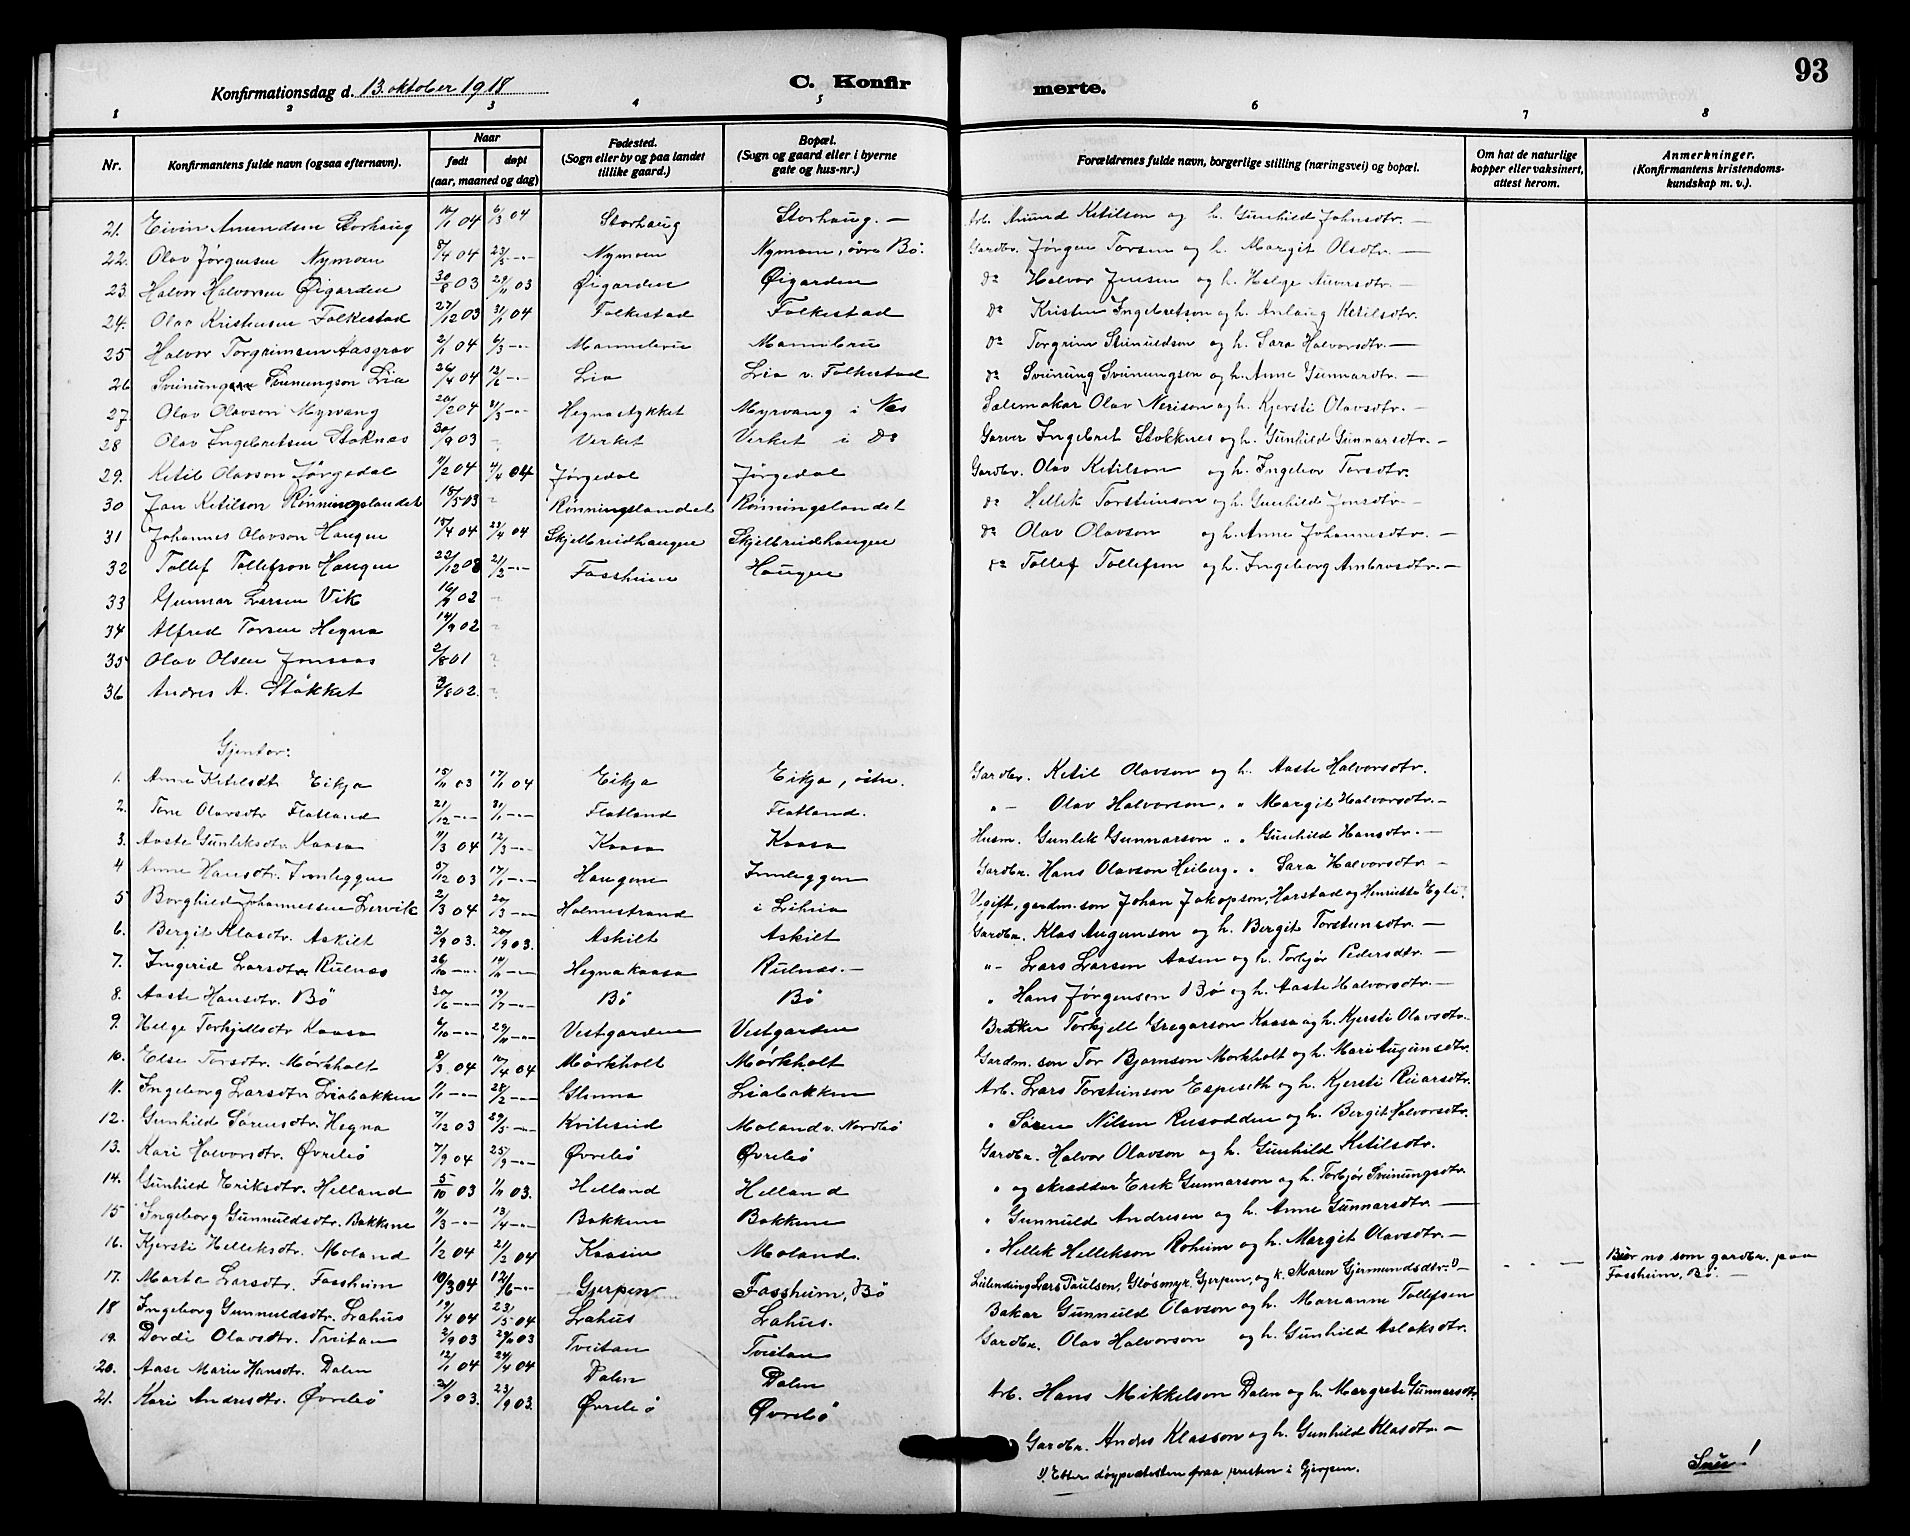 93
Konfirmationsdag d. 13. oktober 1918 C. Konfir merte.
1 2 3 4 5 6 7 8
Nr. Konfirmantens fulde navn (ogsaa efternavn). Naar født døpt (aar, maaned og dag) Fødested. (Sogn eller by og paa landet tillike gaard.) Bopæl. (Sogn og gaard eller i byerne gate og hus-nr.) Forældrenes fulde navn, borgerlige stilling (næringsvei) og bopæl. Om hat de naturlige kopper eller vaksinert, attest herom. Anmerkninger. (Konfirmantens kristendoms-kundskap m. v.).
21. Eivin Amundsen Storhaug 04 6/3 04 Storhaug Storhaug. — Arb. Amund Ketilson og h. Gunhild Johnsdtr. —
22. Olav Jørgensen Nymoen 5/4 04 23/5 -"- Nymoen Nymoen, øvre Bø. Gardbr. Jørgen Torsen og h. Margit Olsdtr. —
23. Halvor Halvorsen Øigarden 30/8 03 29/11 03 Øigarden Øigarden do Halvor Jensen og h. Helge —
24. Olav Kristensen Folkestad 27/12 03 31/1 04 Folkestad Folkestad do Kristen Ingebretson og h. Anlaug Ketilsdtr.
25 Halvor Torgrimsen Aasgrav 2/1 04 6/3 -"- Mannebru Mannebru do Torgrim Steinuldson og h. Sara Halvorsdtr. —
26 Sveinung Sveinungson Lia 26/4 04 12/6 -"- Lia Lia v. Folkestad do Sveinung Sveinungson og h. Anne Gunnarsdtr. —
27. Olav Olavson Myrvang 20/2 04 21/3 -"- Hegnastykket Myrvang i Nes Salemakar Olav Nerison og h. Kjersti Olavsdtr. —
28 Olav Ingebretsen Stoknes 30/9 03 - Verket Verket i do Garver Ingebret Stokknes og h. Gunhild Gunnarsdtr. —
29. Ketil Olavson Jørgedal 11/2 04 4/4 04 Jørgedal Jørgedal Gardbr. Olav Ketilson og h. Ingebor Torsdtr.
30 Jan Ketilson Rønningslandet 18/5 03 - Rønningslandet Rønningslandet do Hellek Torsteinson og h. Gunhild Jonsdtr. —
31 Johannes Olavson Haugen 15/4 04 24/4 04 Skjelbreidhaugen Skjelbreidhaugen do Olav Olavson og h. Anne Johannesdtr. —
32 Tollef Tollefson Haugen 22/12 03 21/2 -"- Fossheim Haugen do Tollef Tollefson og h. Ingeborg Ambrosdtr. —
33 Gunnar Larsen Vik 02 -
34 Alfred Torsen Hegna 14/9 02 -
35 Olav Olsen Jonsaas 2/8 01 -
36 Andres A. Støkket 3/8 02. -
Gjentor:
1. Anne Ketilsdtr Eikja 15/11 03 17/1 04 Eikja Eikja, østre. Gardbr. Ketil Olavson og h. Aaste Halvorsdtr.
2. Tone Olavsdtr Flatland 21/12 -"- 31/1 -"- Flatland Flatland. " - Olav Halvorson " " Margit Halvorsdtr. —
3. Aaste Gunleksdtr. Kaasa 11/3 04 12/3 -"- Kaasa Kaasa Husm. Gunlek Gunnarson " " Gunhild Hansdtr. —
4 Anne Hansdtr. Innleggen 5/12 03 17/1 -"- Haugene Innleggen Gardbr. Hans Olavson Heiberg " " Sara Halvorsdtr. —
5 Borghild Johannessen Lervik 2/3 04 20/3 -"- Holmestrand i Liheia Ugift, gardm. son Johan Jakopson, Harstad og Henriette Egli.
6. Bergit Klasdtr. Askilt 2/9 03. 20/9 03. Askilt Askilt Gardbr. Klas Augunson og h. Bergit Torsteinsdtr. —
7. Ingerid Larsdtr Rulnes 26/10 -"- 14/11 -"- Hegnakaasa Rulnes. — "- Lars Larsen Aasen og h. Torbjør Pedersdtr. —
8. Aaste Hansdtr. Bø 30/6 -"- 19/7 -"- Bø Bø " Hans Jørgensen Bø og h. Aaste Halvorsdtr. —
9. Helge Torkjellsdtr Kaasa 6/10 -"- 29/11 -"- Vestgarden Vestgarden Torkjell Gregarson Kaasa og h. Kjersti Olavsdtr.
10. Else Torsdtr. Mørkholt 8/3 04 10/4 04 Mørkholt Mørkholt Gardm. son Tor Bjørnson Mørkholt og h. Mari Augunsdtr.
11. Ingeborg Larsdtr Liabakken 1/1 -"- 28/2 -"- Glenna Liabakken Arb. Lars Torsteinson Espeseth og h. Kjersti Ruarsdtr.
12. Gunhild Sørensdtr. Hegna 7/12 03 29/5 -"- Kviteseid Moland v. Nordbø " Søren Nilsen Rusodden og h. Bergit Halvorsdtr.
13. Kari Halvorsdtr. Øvrebø 7/9 04 25/9 -"- Øvrebø Øvrebø Gardbr. Halvor Olavson og h. Gunhild Ketilsdtr.
14. Gunhild Eriksdtr. Helland 5/10 03 1/11 03. Helland Helland " og skreddar Erik Gunnarson og h. Torbjør Sveinungsdtr.
15 Ingeborg Gunnuldsdtr. Bakkene 11/3 -"- 13/4 -"- Bakkene Bakkene " Gunnuld Andresen og h. Anne Gunnarsdtr. —
16. Kjersti Helleksdtr. Moland 1/2 04 21/2 04 Kaasen Moland. " Hellek Hellekson Roheim og h. Margit Olavsdtr. —
17. Marta Larsdtr. Fossheim 10/3 04 12/6 -"- Gjerpen Fossheim, Bø Leilending Lars Paulsen, Gløsmyr, Gjerpen, og k. Maren Gjermundsdtr. 1) — - - — Buer no som gardbr. paa Fossheim, Bø. —
18 Ingeborg Gunnuldsdtr. Lahus 19/4 04 23/5 04 Lahus Lahus. Bakar Gunnuld Olavson og h. Marianne Tollefsen
19. Dordi Olavsdtr. Tveitan 2/9 03 29/11 03 Tveitan Tveitan Gardbr. Olav Halvorson og h. Gunhild Aslaksdtr.
20. Aase Marie Hansdtr. Dalen 12/1 04 24/4 04 Dalen Dalen Arb. Hans Mikkelson Dalen og h. Margrete Gunnarsdtr.
21. Kari Andresdtr. Øvrebø 2/9 03. 23/9 03. Øvrebø Øvrebø Gardbr. Andres Klasson og h. Gunhild Klasdtr. —
1) Etter døypeattesten fraa presten i Gjerpen.